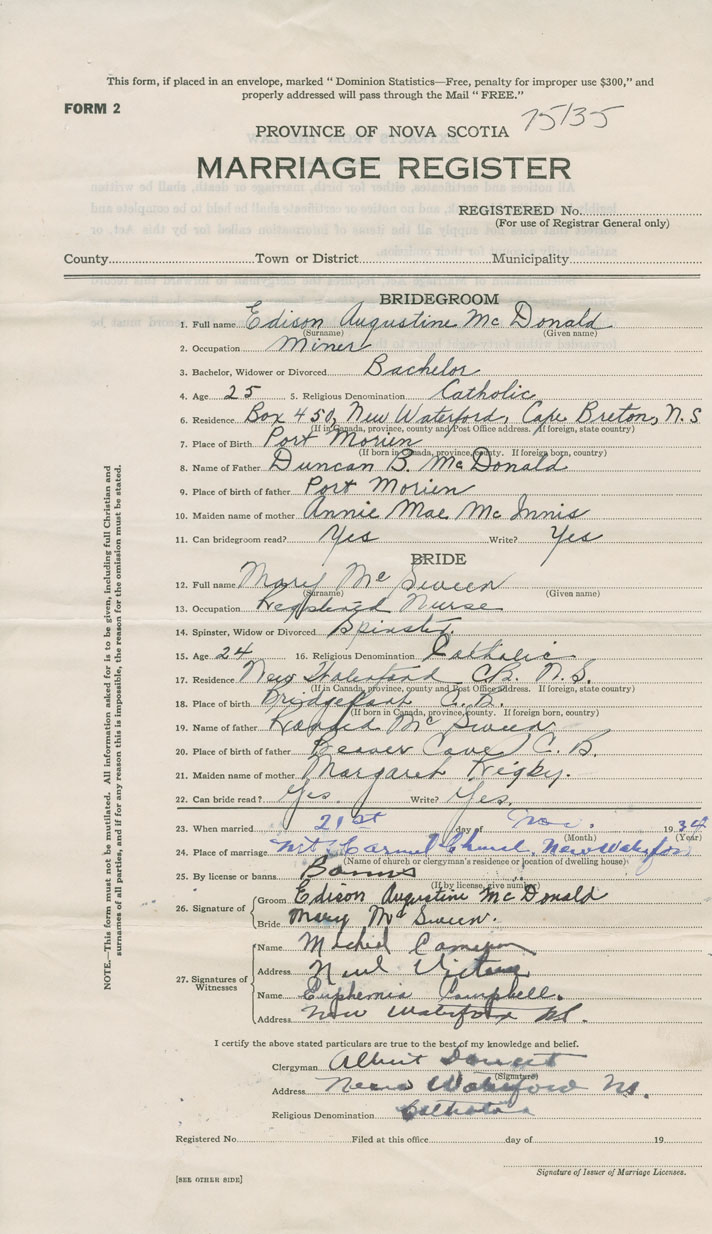 This form, if placed in an envelope, marked “ Dominion Statistics—Free, penalty for improper use $300,” and
properly addressed will pass through the Mail “ FREE.”
FORM 2
PROVINCE OF NOVA SCOTIA 75135
MARRIAGE REGISTER
REGISTERED No.
(For use of Registrar General only)
County Town or District Municipality
BRIDEGROOM
1. Full name Edison Augustine McDonald
(Surname) (Given name)
2. Occupation Miner
3. Bachelor, Widower or Divorced Bachelor
4. Age 25 5. Religious Denomination Catholic
6. Residence Box 450, New Waterford, Cape Breton, N.S
(If in Canada, province, county and Post Office address. If foreign, state country)
7. Place of Birth Port Morien
(If born in Canada, province, county. If foreign born, country)
8. Name of Father Duncan B. McDonald
9. Place of birth of father Port Morien
10. Maiden name of mother Annie Mae McInnis
11. Can bridegroom read? Yes Write? Yes
BRIDE
12. Full name Mary McSween
(Surname) (Given name)
13. Occupation Registered Nurse
14. Spinster, Widow or Divorced Spinster.
15. Age 24 16. Religious Denomination Catholic
17. Residence New Waterford C.B. N.S.
(If in Canada, province, county and Post Office address. If foreign, state country)
18. Place of birth Bridgeport C.B.
(If born in Canada, province, county. If foreign born, country)
19. Name of father McSween
20. Place of birth of father Beaver Cove C.B.
21. Maiden name of mother Margaret Kigby.
22. Can bride read? Yes. Write? Yes.
23. When married 21st day of Nov. 1934
(Month) (Year)
24. Place of marriage Mt Carmel Church, New Waterford
(Name of church or clergyman's residence or location of dwelling house)
25. By license or banns Banns
(If by license, give number)
26. Signature of
Groom Edison Augustine McDonald
Bride Mary McSween.
27. Signatures of Witnesses
Name Cameron
Address New Victoria
Name Euphemia Campbell.
Address New Waterford NS.
I certify the above stated particulars are true to the best of my knowledge and belief.
Clergyman Albert
(Signature)
Address New Waterford NS.
Religious Denomination Catholic
Registered No. Filed at this office day of 19
Signature of Issuer of Marriage Licenses.
[SEE OTHER SIDE]
NOTE.—This form must not be mutilated. All information asked for is to be given, including full Christian and
surnames of all parties, and if for any reason this is impossible, the reason for the omission must be stated.